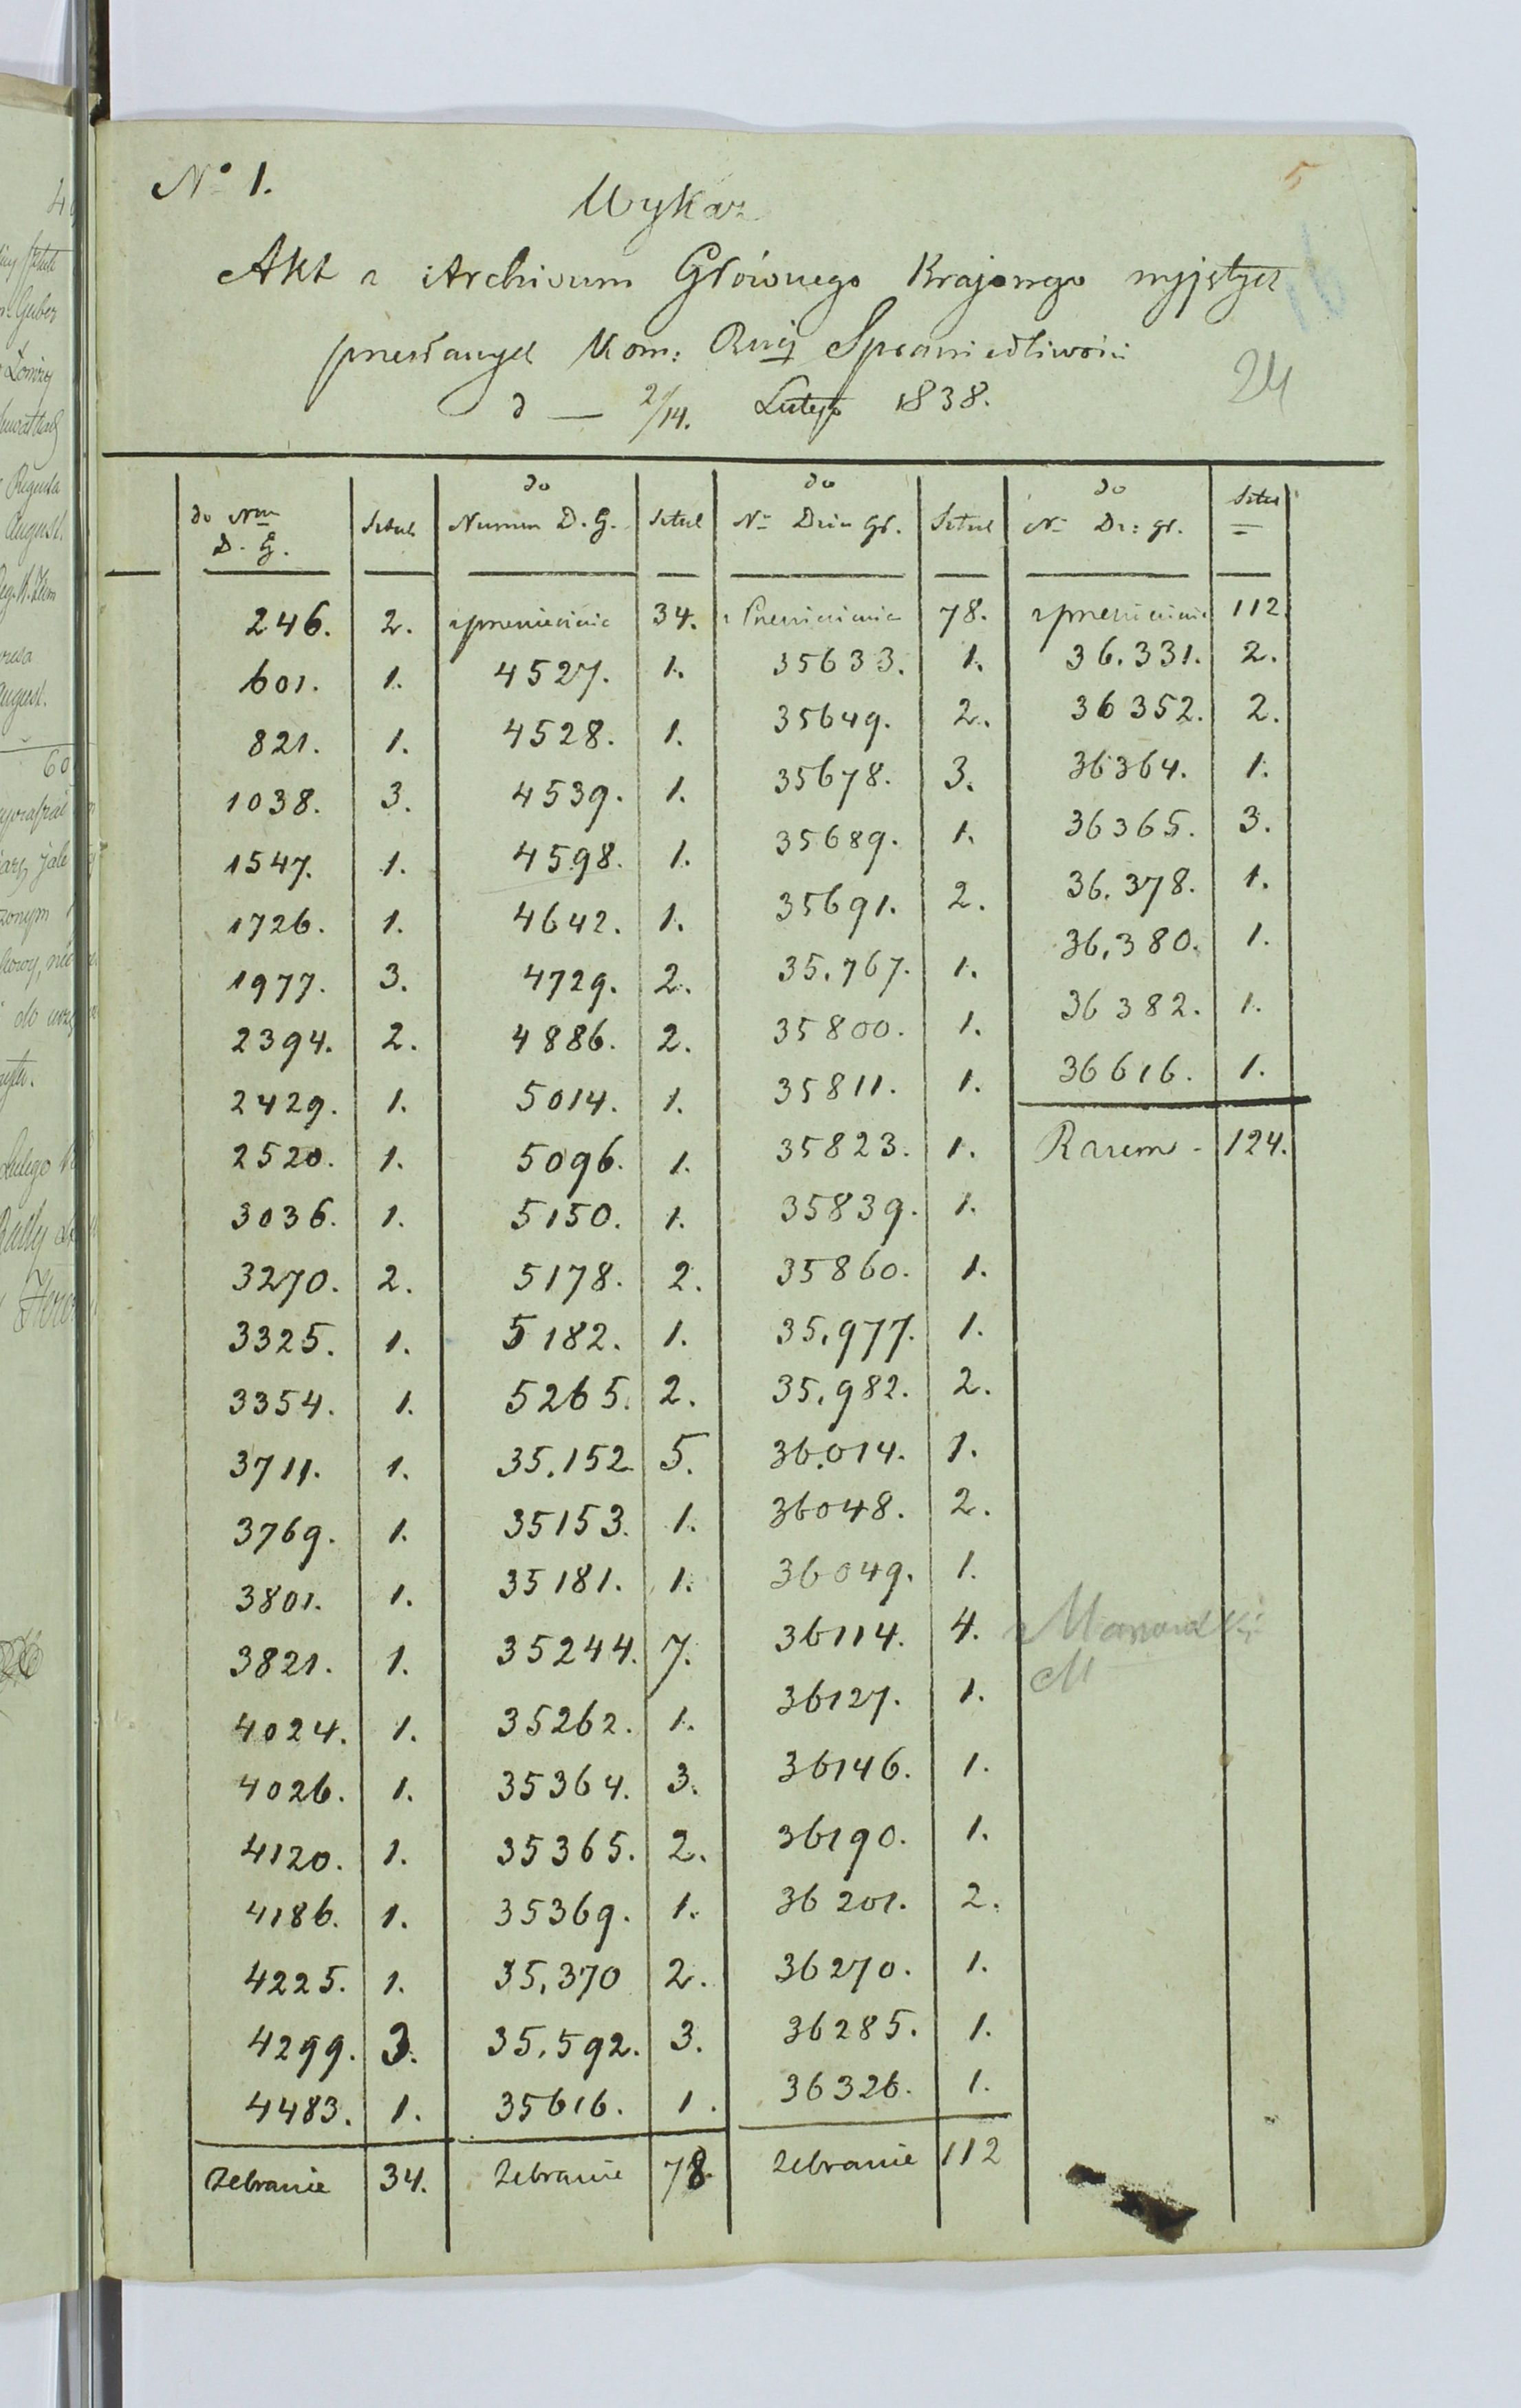 5
No 1.
Wykaz
Akt z Archivum Głównego Krajowego wyjętych
przesłanych Kom: Rząj Sprawiedliwości
d — 2/14. Lutego 1838.
24
do Nru D. G. | Sztuk | do Numeru D. G. | Sztuk | do No Dzien Gł. | Sztuk | do No Dz: gł. | Sztuk
246. | 2. | z przeniesienia | 34. | z Przeniesienia | 78. | z przeniesienia | 112.
601. | 1. | 4527. | 1. | 35633. | 1. | 36.331. | 2.
821. | 1. | 4528. | 1. | 35649. | 2. | 36352. | 2.
1038. | 3. | 4539. | 1. | 35678. | 3. | 36364. | 1.
1547. | 1. | 4598. | 1. | 35689. | 1. | 36365. | 3.
1726. | 1. | 4642. | 1. | 35691. | 2. | 36.378. | 1.
1977. | 3. | 4729. | 2. | 35.767. | 1. | 36.380. | 1.
2394. | 2. | 4886. | 2. | 35800. | 1. | 36382. | 1.
2429. | 1. | 5014. | 1. | 35811. | 1. | 36616. | 1.
2520. | 1. | 5096. | 1. | 35823. | 1. | Razem - | 124.
3036. | 1. | 5150. | 1. | 35839. | 1.
3270. | 2. | 5178. | 2. | 35860. | 1.
3325. | 1. | 5182. | 1. | 35.977. | 1.
3354. | 1. | 5265. | 2. | 35.982. | 2.
3711. | 1. | 35.152 | 5. | 36.014. | 1.
3769. | 1. | 35153. | 1. | 36048. | 2.
3801. | 1. | 35181. | 1. | 36049. | 1.
3821. | 1. | 35244. | 7. | 36114. | 4.
4024. | 1. | 35262. | 1. | 36127. | 1.
4026. | 1. | 35364. | 3. | 36146. | 1.
4120. | 1. | 35365. | 2. | 36190. | 1.
4186. | 1. | 35369. | 1. | 36201. | 2.
4225. | 1. | 35.370 | 2. | 36270. | 1.
4299. | 3. | 35.592. | 3. | 36285. | 1.
4483. | 1. | 35616. | 1. | 36326. | 1.
Zebranie | 34. | Zebranie | 78. | Zebranie | 112